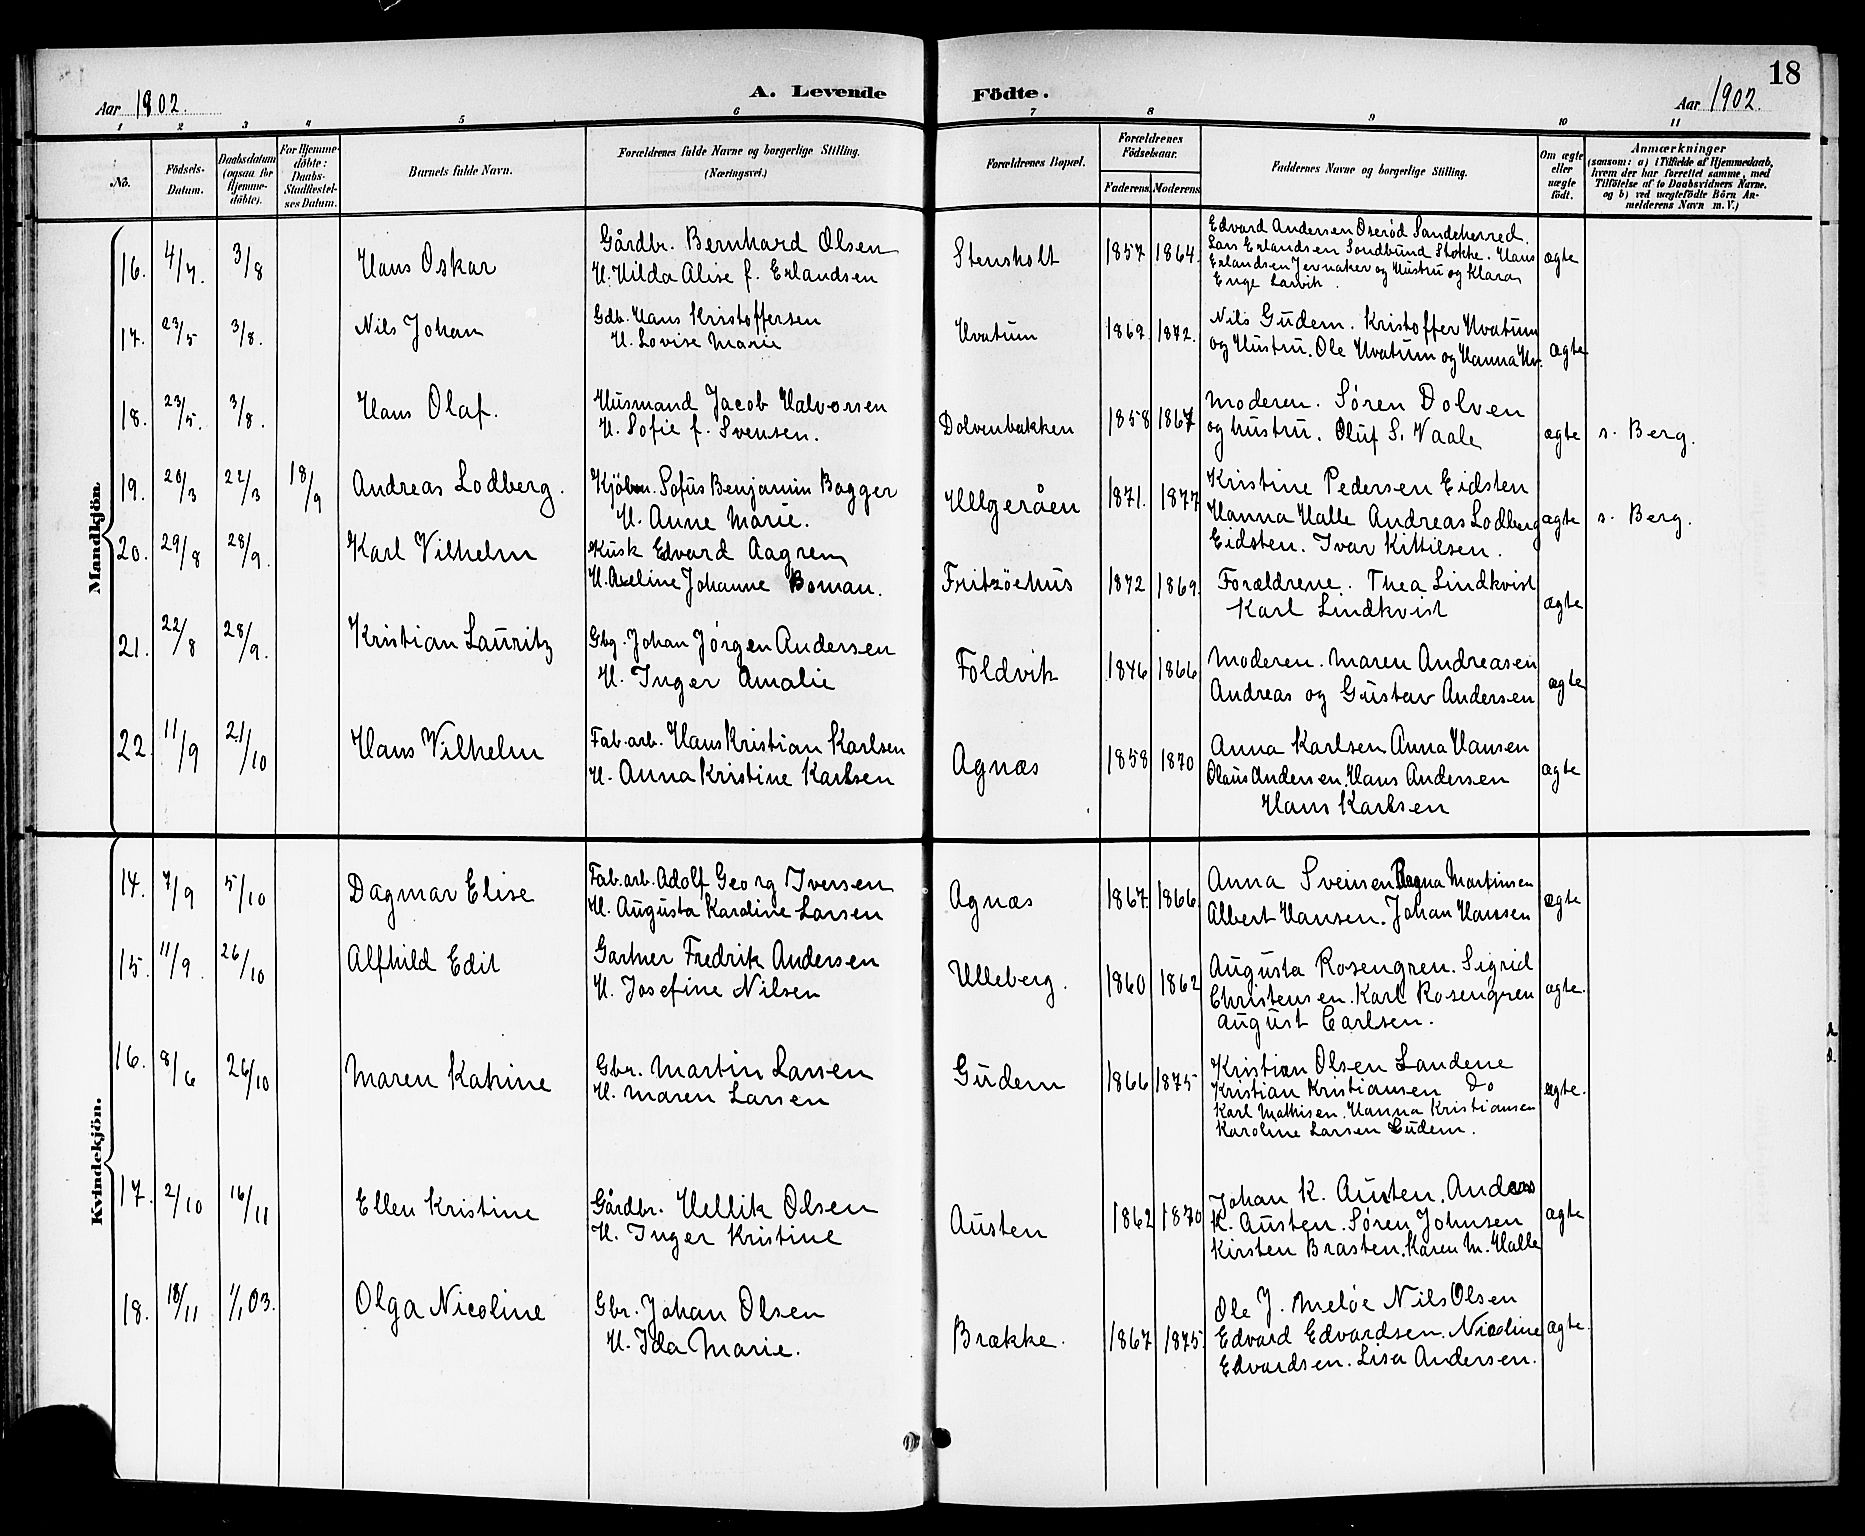 18
Aar 1902.
A. Levende Födte.
Aar 1902.
1 2 3 4 5 6 7 8 9 10 11
No.
Födsels-Datum.
Daabsdatum (ogsaa for Hjemme-döbte).
For Hjemme-döbte: Daabs-Stadfæstel-ses Datum.
Barnets fulde Navn.
Forældrenes fulde Navne og borgerlige Stilling. (Næringsvei.)
Forældrenes Bopæl.
Forældrenes Födselsaar.
Faderens. Moderens.
Faddernes Navne og borgerlige Stilling.
Om ægte eller uægte födt.
Anmærkninger
(saasom: a) i Tilfælde af Hjemmedaab, hvem der har forrettet samme, med Tilföielse af to Daabsvidners Navne, og b) ved uægtefödte Börn An-melderens Navn m. V.)
Mandkjön.
16. 4/7. 3/8 Hans Oskar
Gårdbr. Bernhard Olsen
H. Hilda Alise f. Erlandsen
Stensholt 1857 1864.
Edvard Andersen Oserød Sandeherred.
Lars Erlandsen Sundbund Stokke. Hans
Erlandsen Jernaker og Hustru og Klara
Enge Larvik.
ægte
17. 23/5 3/8. Nils Johan
Gdb. Hans Kristoffersen
H. Lovise Marie
Hvatum 1869. 1872.
Nils Gudem. Kristoffer Hvatum
og Hustru. Ole Hvatum og Hanna Hv.
ægte
18. 23/5. 3/8. Hans Olaf.
Husmand Jacob Halvorsen
H. Sofie f. Svensen.
Dolvenbakken 1858 1867
Moderen. Søren Dolven
og hustru. Oluf S. Vaale
ægte s. Berg.
19. 20/3 22/3 18/9 Andreas Lodberg.
Kjøbm. Sofus Benjamin Bagger
H. Anne Marie.
Helgeråen 1871. 1877
Kristine Pedersen Eidsten
Hanna Halle Andreas Lodberg
Eidsten. Ivar Kittilsen.
ægte s. Berg.
20. 29/8 28/9. Karl Vilhelm
Kusk Edvard Aagren
H. Axeline Johanne Boman.
Fritzöehus 1872 1869.
Forældrene. Thea Lindkvist
Karl Lindkvist
ægte
21. 22/8 28/9. Kristian Lauritz
Gbg. Johan Jørgen Andersen
H. Inger Amalie
Foldvik 1846 1866
Moderen. Maren Andreasen
Andreas og Gustav Andersen
ægte
22. 11/9 21/10 Hans Vilhelm
Fab.arb. Hans Kristian Karlsen
H. Anna Kristine Karlsen
Agnæs 1858 1870
Anna Karlsen Anna Hansen
Olaus Andersen. Hans Andersen
Hans Karlsen
ægte
Kvindekjön.
14. 7/9 5/10 Dagmar Elise
Fab.arb. Adolf Georg Iversen
H. Augusta Karoline Larsen
Agnæs 1867 1866
Anna Svensen Ragna Martinsen
Albert Hansen. Johan Hansen
ægte
15. 11/9. 26/10 Alfhild Edit
Gartner Fredrik Andersen
H. Josefine Nilsen
Ulleberg. 1860 1862
Augusta Rosengren. Sigrid
Christensen. Karl Rosengren
August Carlsen.
ægte.
16. 8/6 26/10 Maren Katrine
Gbr. Martin Larsen
H. Maren Larsen
Gudem 1866 1875
Kristian Olsen Landene
Kristian Kristiansen Do
Karl Mathisen. Hanna Kristiansen
Karoline Larsen Gudem.
ægte.
17. 2/10 16/11 Ellen Kristine
Gårdbr. Hellik Olsen
H. Inger Kristine
Austen 1862 1870
Johan K. Austen. Andreas
K. Austen. Søren Johnsen
Kirsten Brasten. Karen M. Halle
ægte
18. 18/11 1/1 03. Olga Nicoline
Gbr. Johan Olsen
H. Ida Marie.
Brække. 1867 1875.
Ole J. Meløe Nils Olsen
Edvard Edvardsen. Nicoline
Edvardsen. Lisa Andersen.
ægte.